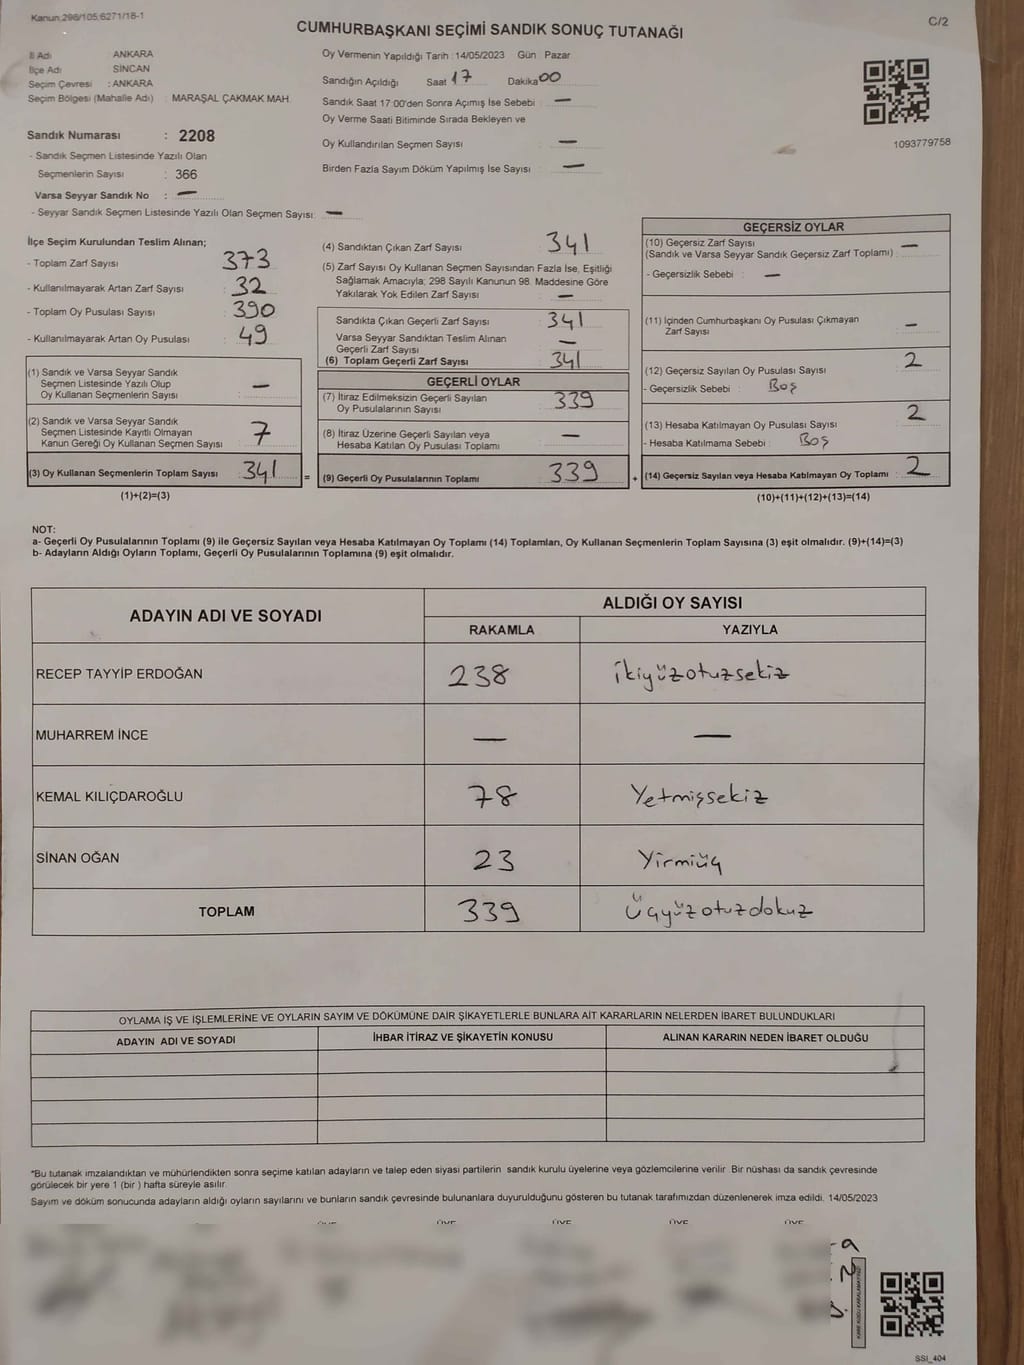 Kanun.298/105,6271/18-1
CUMHURBAŞKANI SEÇİMİ SANDIK SONUÇ TUTANAĞI
C/2
İl Adı : ANKARA
İlçe Adı : SİNCAN
Seçim Çevresi : ANKARA
Seçim Bölgesi (Mahalle Adı) : MARAŞAL ÇAKMAK MAH.
Sandık Numarası : 2208
- Sandık Seçmen Listesinde Yazılı Olan
Seçmenlerin Sayısı : 366
Varsa Seyyar Sandık No : —
- Seyyar Sandık Seçmen Listesinde Yazılı Olan Seçmen Sayısı: —
Oy Vermenin Yapıldığı Tarih : 14/05/2023 Gün : Pazar
Sandığın Açıldığı Saat 17 Dakika 00
Sandık Saat 17:00'den Sonra Açımış İse Sebebi : —
Oy Verme Saati Bitiminde Sırada Bekleyen ve
Oy Kullandırılan Seçmen Sayısı : —
Birden Fazla Sayım Döküm Yapılmış İse Sayısı : —
1093779758
İlçe Seçim Kurulundan Teslim Alınan;
- Toplam Zarf Sayısı : 373
- Kullanılmayarak Artan Zarf Sayısı : 32
- Toplam Oy Pusulası Sayısı : 390
- Kullanılmayarak Artan Oy Pusulası : 49
(1) Sandık ve Varsa Seyyar Sandık
Seçmen Listesinde Yazılı Olup
Oy Kullanan Seçmenlerin Sayısı : —
(2) Sandık ve Varsa Seyyar Sandık
Seçmen Listesinde Kayıtlı Olmayan
Kanun Gereği Oy Kullanan Seçmen Sayısı : 7
(3) Oy Kullanan Seçmenlerin Toplam Sayısı : 341 =
(1)+(2)=(3)
(4) Sandıktan Çıkan Zarf Sayısı : 341
(5) Zarf Sayısı Oy Kullanan Seçmen Sayısından Fazla İse, Eşitliği
Sağlamak Amacıyla; 298 Sayılı Kanunun 98. Maddesine Göre
Yakılarak Yok Edilen Zarf Sayısı : —
Sandıkta Çıkan Geçerli Zarf Sayısı : 341
Varsa Seyyar Sandıktan Teslim Alınan
Geçerli Zarf Sayısı : —
(6) Toplam Geçerli Zarf Sayısı : 341
GEÇERLİ OYLAR
(7) İtiraz Edilmeksizin Geçerli Sayılan
Oy Pusulalarının Sayısı : 339
(8) İtiraz Üzerine Geçerli Sayılan veya
Hesaba Katılan Oy Pusulası Toplamı : —
(9) Geçerli Oy Pusulalarının Toplamı : 339 +
GEÇERSİZ OYLAR
(10) Geçersiz Zarf Sayısı
(Sandık ve Varsa Seyyar Sandık Geçersiz Zarf Toplamı) : —
- Geçersizlik Sebebi : —
(11) İçinden Cumhurbaşkanı Oy Pusulası Çıkmayan
Zarf Sayısı : —
(12) Geçersiz Sayılan Oy Pusulası Sayısı : 2
- Geçersizlik Sebebi : Boş
(13) Hesaba Katılmayan Oy Pusulası Sayısı : 2
- Hesaba Katılmama Sebebi : Boş
(14) Geçersiz Sayılan veya Hesaba Katılmayan Oy Toplamı : 2
(10)+(11)+(12)+(13)=(14)
NOT:
a- Geçerli Oy Pusulalarının Toplamı (9) ile Geçersiz Sayılan veya Hesaba Katılmayan Oy Toplamı (14) Toplamları, Oy Kullanan Seçmenlerin Toplam Sayısına (3) eşit olmalıdır. (9)+(14)=(3)
b- Adayların Aldığı Oyların Toplamı, Geçerli Oy Pusulalarının Toplamına (9) eşit olmalıdır.
ADAYIN ADI VE SOYADI ALDIĞI OY SAYISI
RAKAMLA YAZIYLA
RECEP TAYYİP ERDOĞAN 238 İkiyüzotuzsekiz
MUHARREM İNCE — —
KEMAL KILIÇDAROĞLU 78 Yetmişsekiz
SİNAN OĞAN 23 Yirmiüç
TOPLAM 339 Üçyüzotuzdokuz
OYLAMA İŞ VE İŞLEMLERİNE VE OYLARIN SAYIM VE DÖKÜMÜNE DAİR ŞİKAYETLERLE BUNLARA AİT KARARLARIN NELERDEN İBARET BULUNDUKLARI
ADAYIN ADI VE SOYADI İHBAR İTİRAZ VE ŞİKAYETİN KONUSU ALINAN KARARIN NEDEN İBARET OLDUĞU
*Bu tutanak imzalandıktan ve mühürlendikten sonra seçime katılan adayların ve talep eden siyasi partilerin sandık kurulu üyelerine veya gözlemcilerine verilir. Bir nüshası da sandık çevresinde
görülecek bir yere 1 (bir) hafta süreyle asılır.
Sayım ve döküm sonucunda adayların aldığı oyların sayılarını ve bunların sandık çevresinde bulunanlara duyurulduğunu gösteren bu tutanak tarafımızdan düzenlenerek imza edildi. 14/05/2023
ÜYE ÜYE ÜYE ÜYE
SSI_404